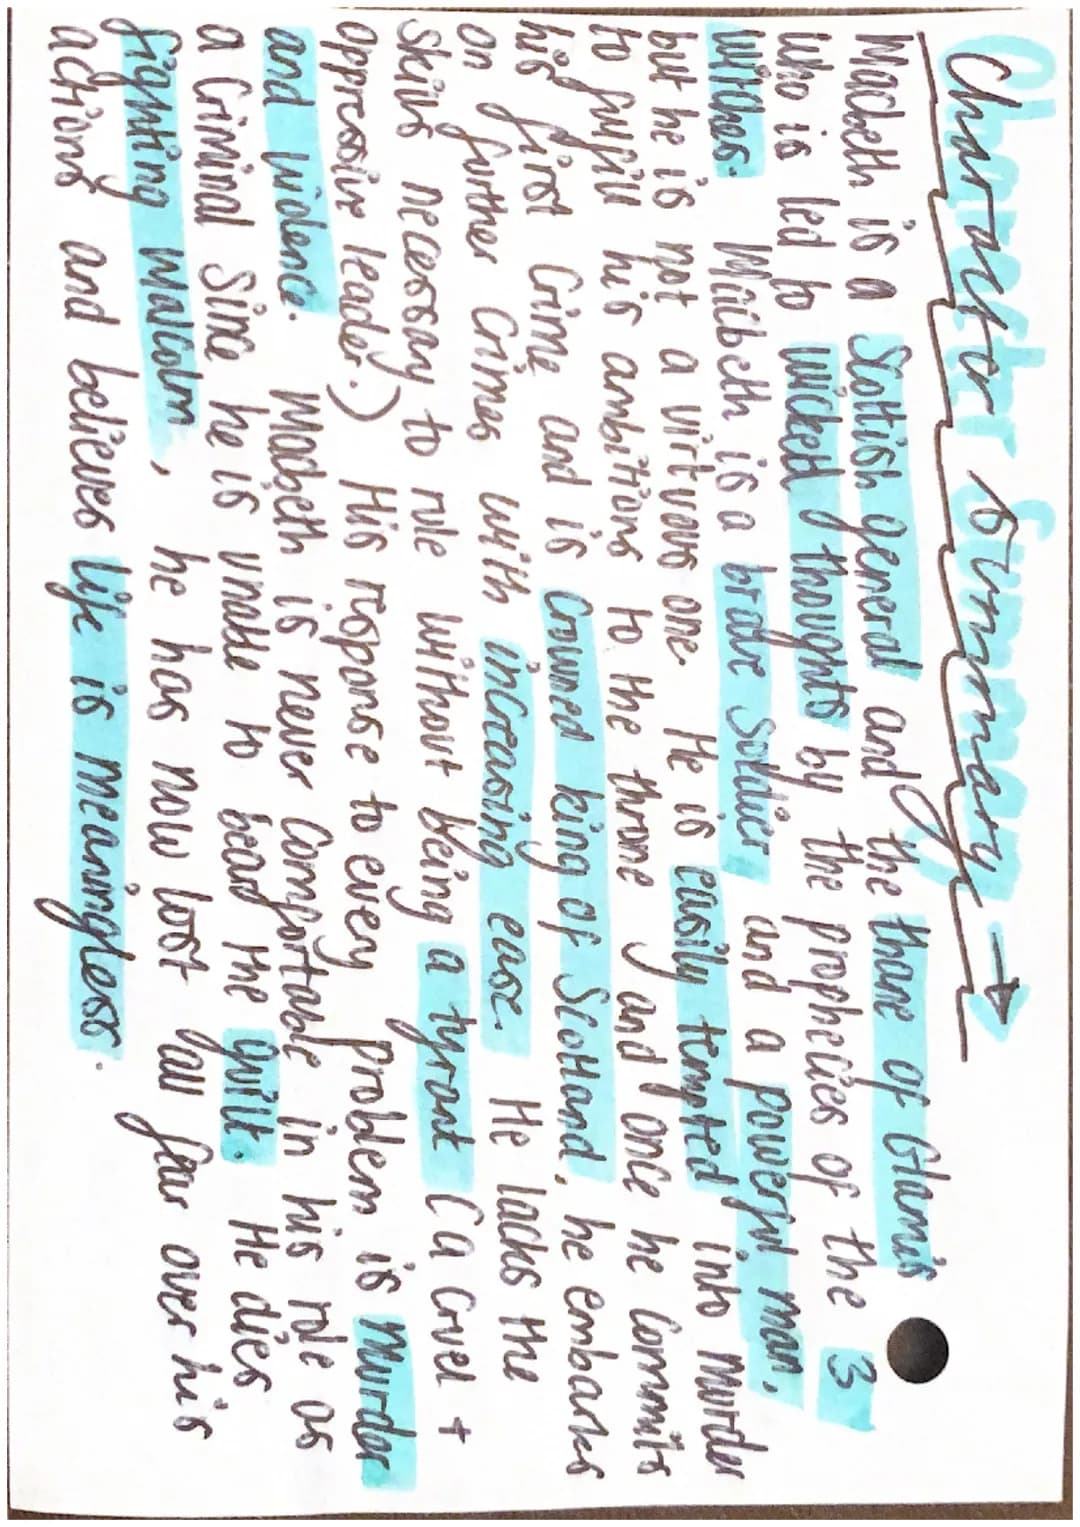 Character Summary →
Macbeth is a Scottish general and the thane of Glamis
who is led to wicked thoughts by the prophecies of the 3
witches. Macbeth is a brave soldier and a powerful man,
but he is not a virtuous one. He is easily tempted into murder
to fulfill his ambitions to the throne and once he commits
his first crime and is crowned king of Scotland, he embarks
on further crimes with increasing ease. He lacks the
skills necessary to rule without being a tyrant (a cruel +
oppressive leader.) His response to every problem is murder
and violence. Macbeth is never comfortable in his role as
a criminal since he is unable to bear the guilt. He dies
fighting Malcolm, he has now lost all fear over his
actions and believes life is meaningless.